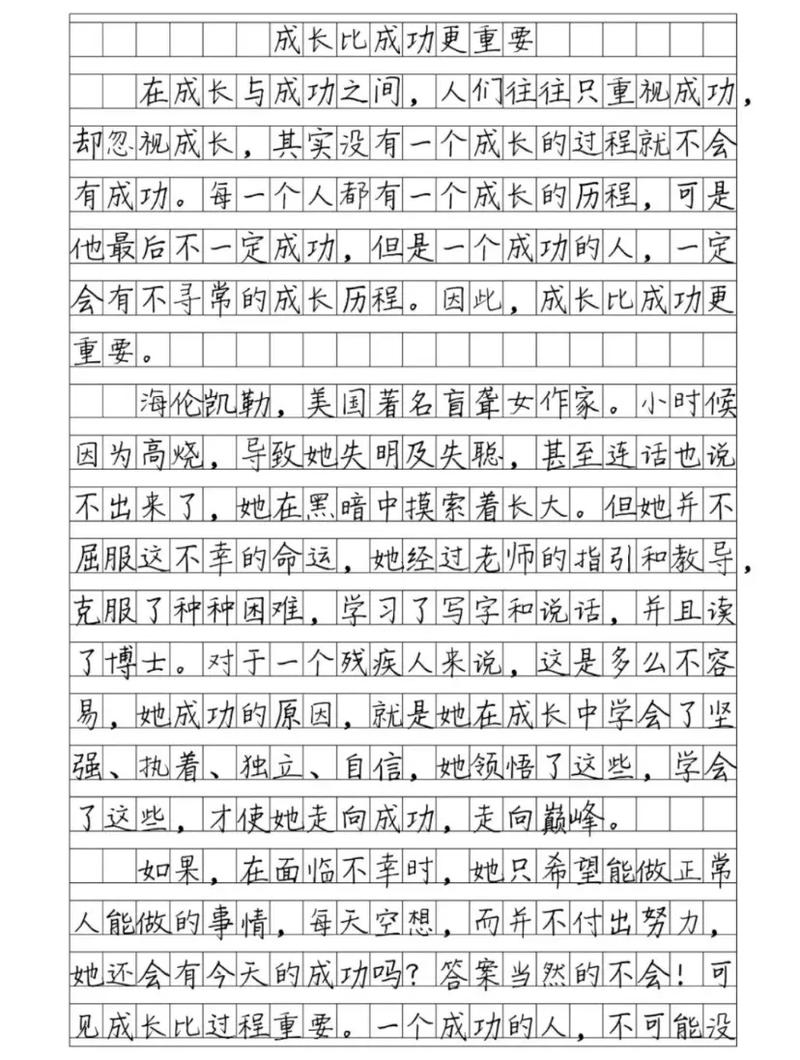 成长比成功更重要
在成长与成功之间，人们往往只重视成功，
却忽视成长，其实没有一个成长的过程就不会
有成功。每一个人都有一个成长的历程，可是
他最后不一定成功，但是一个成功的人，一定
会有不寻常的成长历程。因此，成长比成功更
重要。
海伦凯勒，美国著名盲聋女作家。小时候
因为高烧，导致她失明及失聪，甚至连话也说
不出来了，她在黑暗中摸索着长大。但她并不
屈服这不幸的命运，她经过老师的指引和教导，
克服了种种困难，学习了写字和说话，并且读
了博士。对于一个残疾人来说，这是多么不容
易，她成功的原因，就是她在成长中学会了坚
强、执着、独立、自信，她领悟了这些，学会
了这些，才使她走向成功，走向巅峰。
如果，在面临不幸时，她只希望能做正常
人能做的事情，每天空想，而并不付出努力，
她还会有今天的成功吗？答案当然的不会！可
见成长比过程重要。一个成功的人，不可能没